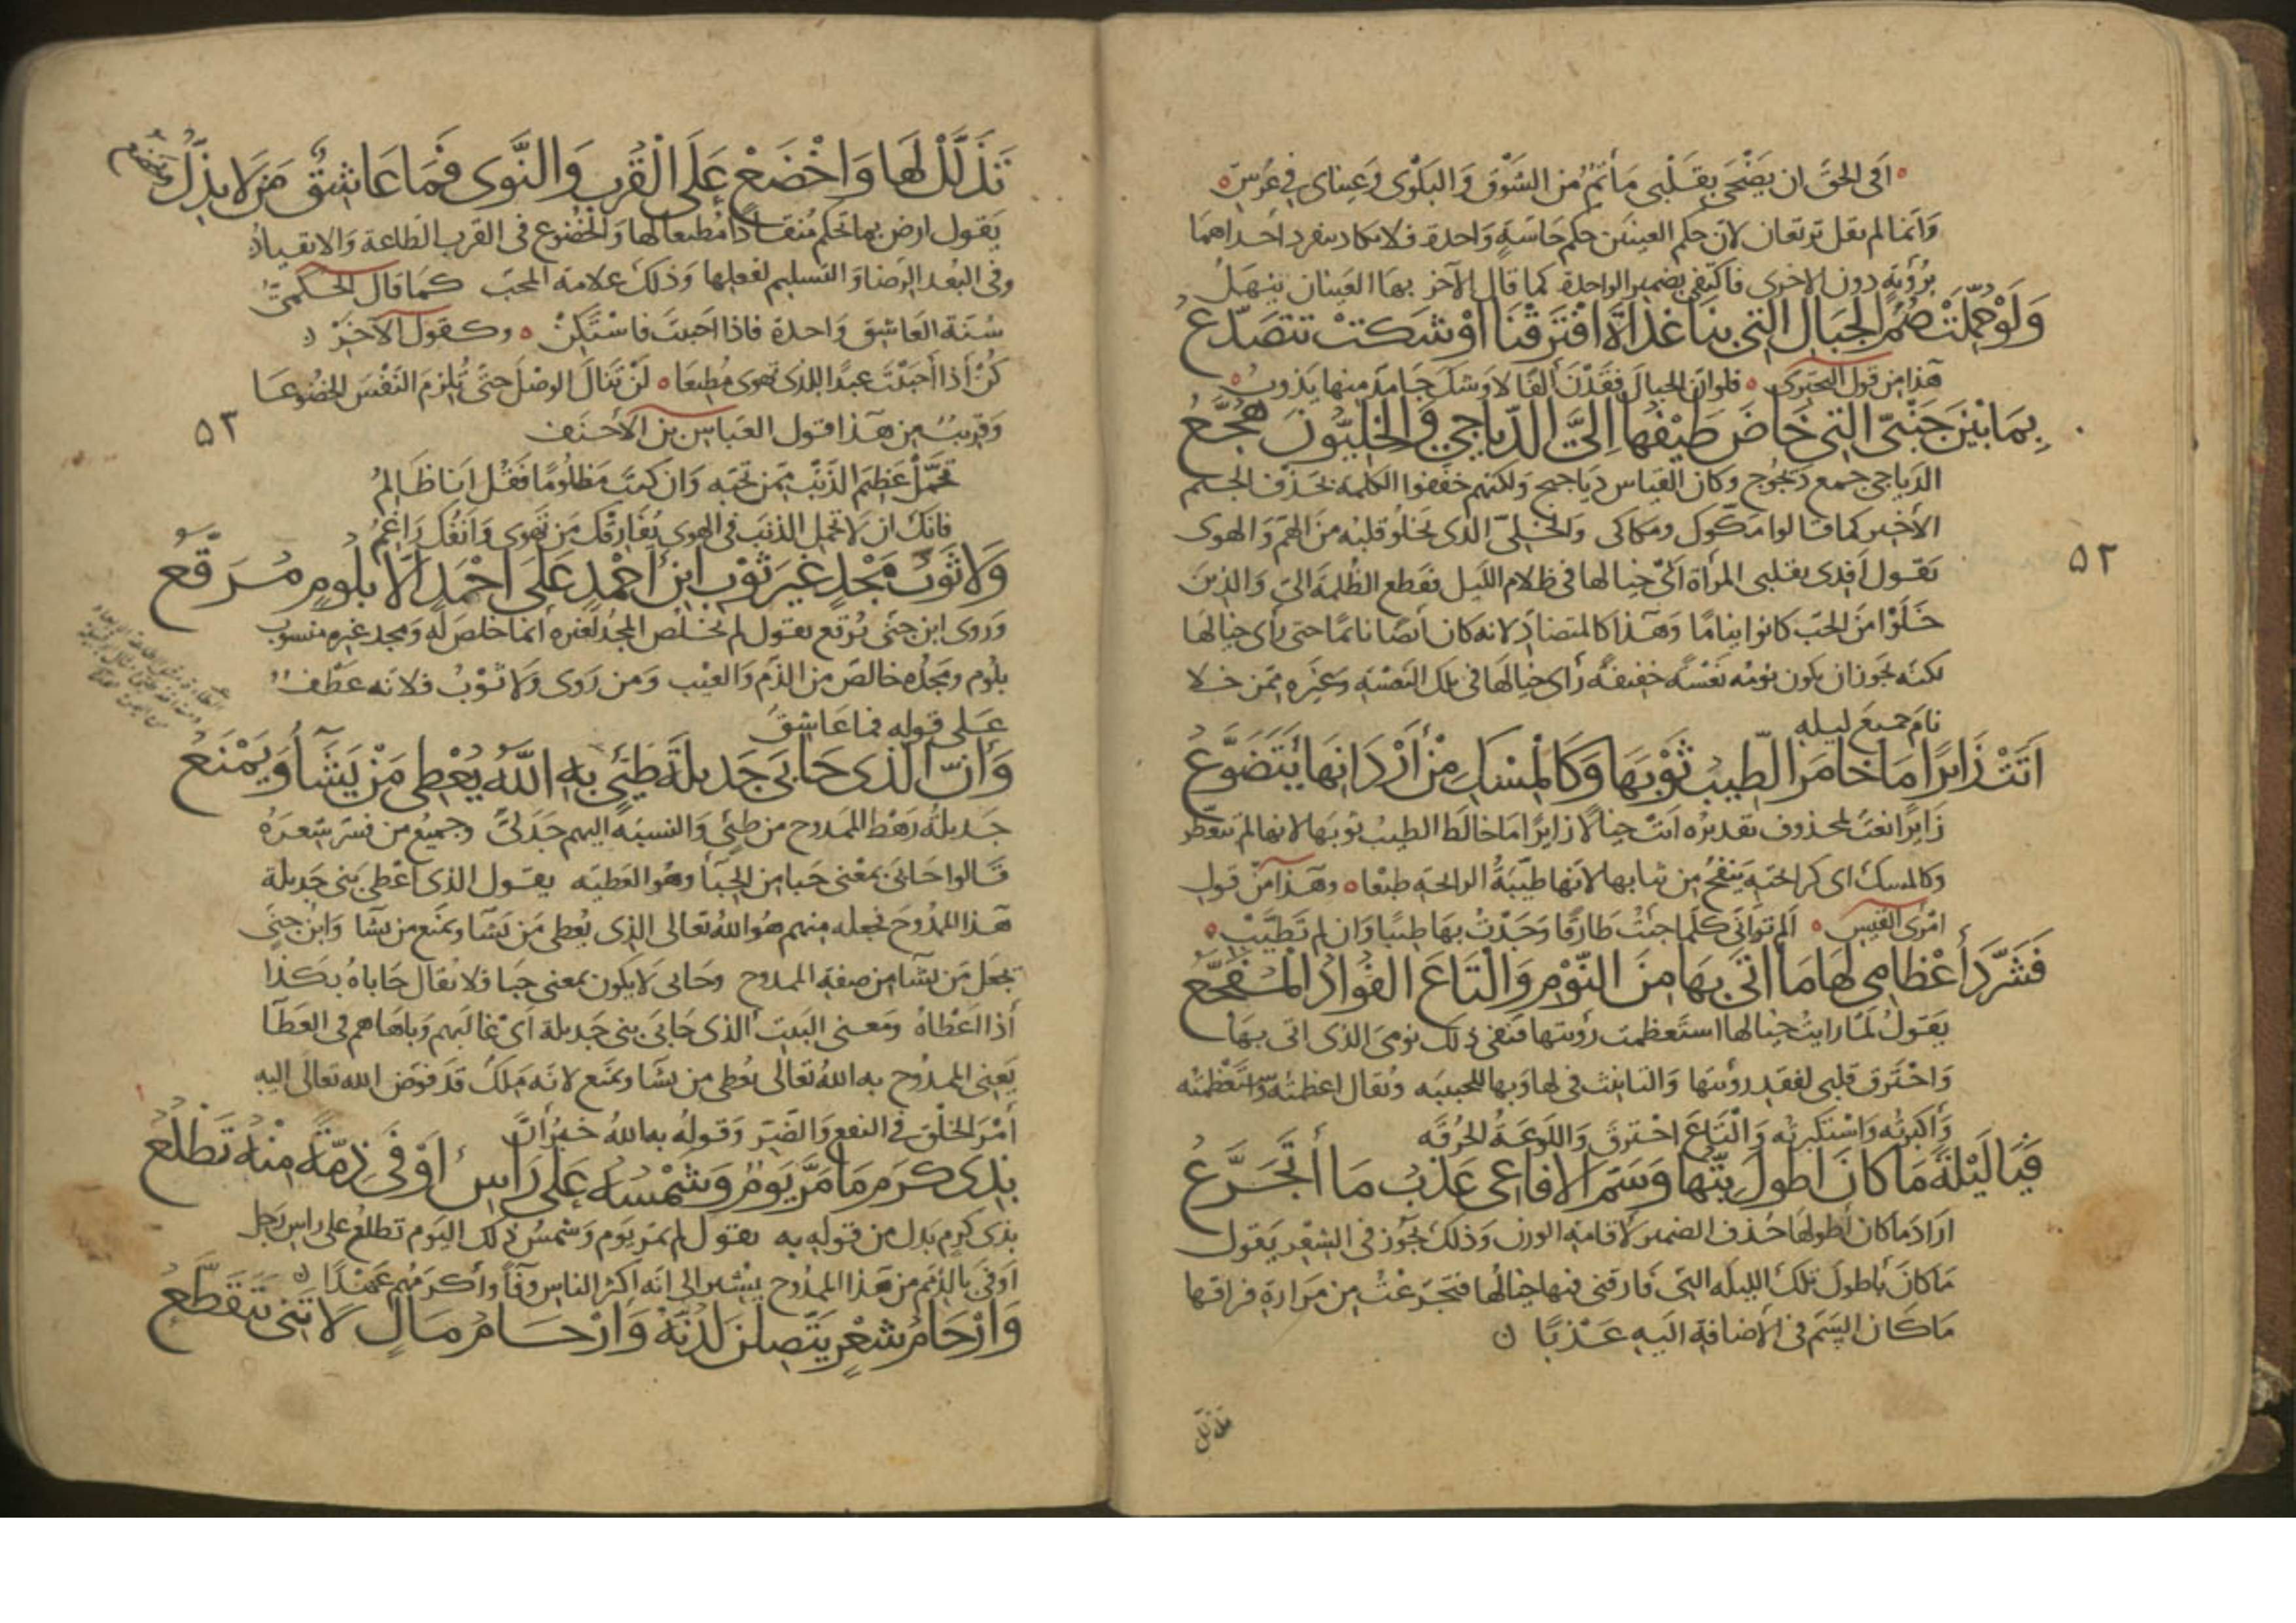 افى الحق ان يضحى بقلبى مأتم من الشوق والبلوى وعيناى فى عرس
وانما لم يقل ترتعان لان حكم العينين حكم حاسة واحدة فلا تكاد تنفرد احداهما
برؤية دون الاخرى فاكتفى بضمير الواحدة كما قال الآخر بها العينان تنهل
وَلَوْ حُمِّلَتْ صُمُّ الجِبَالِ التي بنا غَدَاةَ افْتَرَقْنَا اوْشَكَتْ تتصَدّعُ
هذا من قول البحترى فلو ان الجبال فقدن الفا لاوشك جامد منها يذوب
بِمَا بَيْنَ جَنْبَيَّ التي خَاضَ طَيْفُهَا اِلَيَّ الدّيَاجِي وَالخَلِيُّونَ هُجَّعُ
الدياجى جمع ديجوج وكان القياس دياجيج ولكنهم خففوا الكلمة بحذف الجيم
الأخير كما قالوا مكّوك ومكاكى والخلىّ الذى يخلو قلبه من الهم والهوى
يقول أفدى بقلبى المرأة التى خيالها فى ظلام الليل فقطع الظلمة الىّ والذين
خلوا من الحب كانوا نياما وهذا كالمتضاد لانه كان أيضا نائما حتى رأى خيالها
لكنه يجوز ان يكون نومه نعسة خفيفة رأى خيالها فى تلك النعسة وغيره ممن خلا
نام جميع ليله
اَتَتْ زَائِرًا مَا خَامَرَ الطِّيبُ ثَوْبَهَا وَكَالْمِسْكِ مِنْ أَرْدَانِهَا يَتَضَوَّعُ
زائرا نعت لمحذوف تقديره اتت خيالا زايرا ما خالط الطيب ثوبها لانها لم تتعطر
وكالمسك اى كرائحته ينفح من ثيابها لانها طيبة الرائحة طبعا وهذا من قول
امرئ القيس الم ترانى كلما جئت طارقا وجدت بها طيبا وان لم تطيب
فَشَرَّدَ أَعْظَامِى لَهَا مَا أَتَى بِهَا مِنَ النَّوْمِ وَالْتَاعَ الفُؤَادُ الْمُفَجَّعُ
يقول لما رايت خيالها استعظمت رؤيتها فنفى ذلك نومى الذى اتى بها
واحترق قلبى لفقد رؤيتها والتانيث فى لها وبها للحبيبه ويقال اعظمته واستعظمته
وأكبرته واستكبرته والتاع احترق واللوعة الحرقه
فَيَا لَيْلَةً مَا كَانَ أَطْوَلَ بِتُّهَا وَسَمُّ الافَاعِى عَذْبُ مَا أَتَجَرَّعُ
اراد ما كان أطولها حذف الضمير لاقامة الوزن وذلك يجوز فى الشعر يقول
ما كان باطول تلك الليلة التى فارقنى فيها خيالها فتجرعت من مرارة فراقها
ما كان السم فى الاضافة اليه عذبا
٥٢
تذلل
تَذَلَّلْ لَهَا وَاخْضَعْ عَلَى الْقُرْبِ وَالنَّوَى فَمَا عَاشِقٌ مَنْ لَا يَذِلُّ وَيخضع
يقول ارض بما تحكم منقادا مطيعا لها والخضوع فى القرب الطاعة والانقياد
وفى البعد الرضا والتسليم لفعلها وذلك علامة المحب كما قال الحكمىّ
سنة العاشق واحدة فاذا احببت فاستكن وكقول الآخر
كن اذا أحببت عبدا للذى تهوى مطيعا لن تنال الوصل حتى تلزم النفس الخضوعا
وقريب من هذا قول العباس بن الأحنف
تحمّل عظيم الذنب ممن تحبه وان كنت مظلوما فقل انا ظالم
فانك ان لا تحمل الذنب فى الهوى يفارقك من تهوى وانفك راغم
٥٣
وَلا ثَوْبُ مَجْدٍ غَيرَ ثَوْبِ ابْنِ أَحْمَدٍ عَلَى أَحَدٍ الّا بِلُومٍ مُرَقَّعُ
وروى ابن جنى يرقع يقول لم يخلص المجد لغيره انما خلص له ومجد غيره منسوب
بلوم ومجده خالص من الذم والعيب ومن روى ولا ثوب فلانه عطف
على قوله فما عاشق
وَأنّ الَّذى حَابَى جَدِيلَةَ طَيِّئٍ بِهِ اللّهُ يُعْطِى مَنْ يَشَاءُ وَيَمْنَعُ
جديلة رهط الممدوح من طيئ والنسبة اليهم جدلىّ وجميع من فسر شعره
قالوا حابى بمعنى حبا من الحباء وهو العطيه يقول الذى اعطى بنى جديلة
هذا الممدوح فجعله منهم هو الله تعالى الذى يعطى من يشا ويمنع من يشا وابن جنى
يجعل من يشا من صفة الممدوح وحابى لا يكون بمعنى حبا فلا يقال حاباه بكذا
أذا اعطاه ومعنى البيت الذى حابى بنى جديلة اى غالبهم وباهاهم فى العطآ
يعنى الممدوح به الله تعالى يعطى من يشا ويمنع لانه ملك قد فوض الله تعالى اليه
أمر الخلق فى النفع والضر وقوله به الله خبر أن
بِذِى كَرَمٍ مَا مَرَّ يَوْمٌ وَشَمْسُهُ عَلَى رَاسِ اوْفَى ذِمَّةً مِنْهُ تَطْلُعُ
بذى كرم بدل من قوله به يقول لم يمر يوم وشمس ذلك اليوم تطلع على راس رجل
اوفى بالذمم من هذا الممدوح يشير الى انه اكثر الناس وفآ وأكرمهم عهدا
وَارْحَامُ شِعْرٍ يَتَّصِلْنَ لَدُنَّهُ وَارْحَامُ مَالٍ لا تَنِى تَتَقَطَّعُ